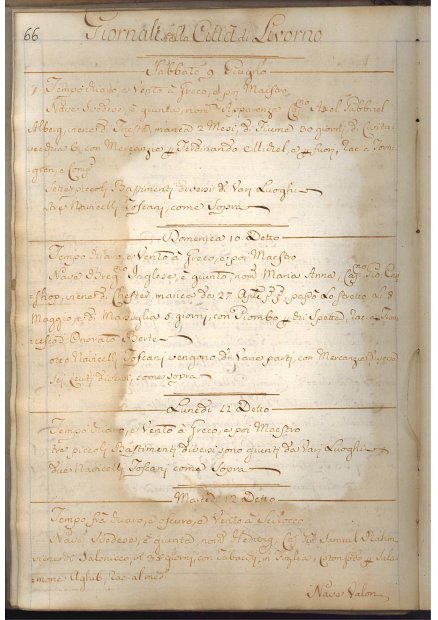 66 Giornali della Città di Livorno
Sabbato 9 Giugno
Tempo Chiaro, e Vento à Greco, e poi Maestro
Nave Svedese, è giunta, nomª Apparenza, Capno Axel Gabbriel
Alberg, viene di Trieste, manca 2 Mesi, di Fiume 30 giorni, di Civita
vecchia 6, con Mercanzie p Ferdinando Michel, e p fuori, rac. a
e Compi
Sette piccoli Bastimenti diversi di Vari Luoghi
Navicelli Toscani come Sopra
Domenica 10 Detto
Tempo Chiaro, e Vento à Greco, e poi Maestro
Nave Inglese, è giunto, nomª Maria Anna, Capno Gio.
viene di Chester, manca da 27 Aple pp, passò lo stretto al 8
Maggio, e di Marsiglia 5 giorni, con Piombo p chi Spetta, rac. a Fran-
cesco, e Onorato Berte
otto Navicelli Toscani vengono da Varie parti, con Mercanzie diverse
Sei Leuti diversi, come sopra
Lunedì 11 Detto
Tempo Chiaro, e Vento à Greco, e poi Maestro
tre piccoli Bastimenti diversi sono giunti da Vari Luoghi
due Navicelli Toscani come Sopra
Martedì 12 Detto
Tempo frà chiaro, e oscuro, e Vento a Scilocco
Nave Svedese, è giunta, nomª Hedvig, Capno Samuel
viene di Salonicco, in 38 giorni, con Tabacchi, in foglia, e Coton p Sala-
mone Aghib, rac. al med.
Nave Valon